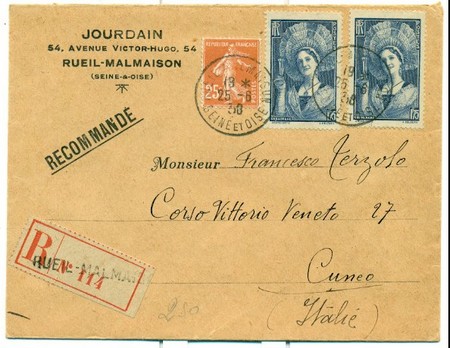 JOURDAIN
54, AVENUE VICTOR-HUGO, 54
RUEIL-MALMAISON
(SEINE-&-OISE)
RECOMMANDÉ
RÉPUBLIQUE FRANÇAISE
25c
POSTES
RF
1f75
RF
1f75
19 *
25-8
38
SEINE ET OISE
19
25-8
38
Monsieur Francesco Terzolo
Corso Vittorio Veneto 27
Cuneo
(Italie)
R
RUEIL-MALMAI
No 114
250